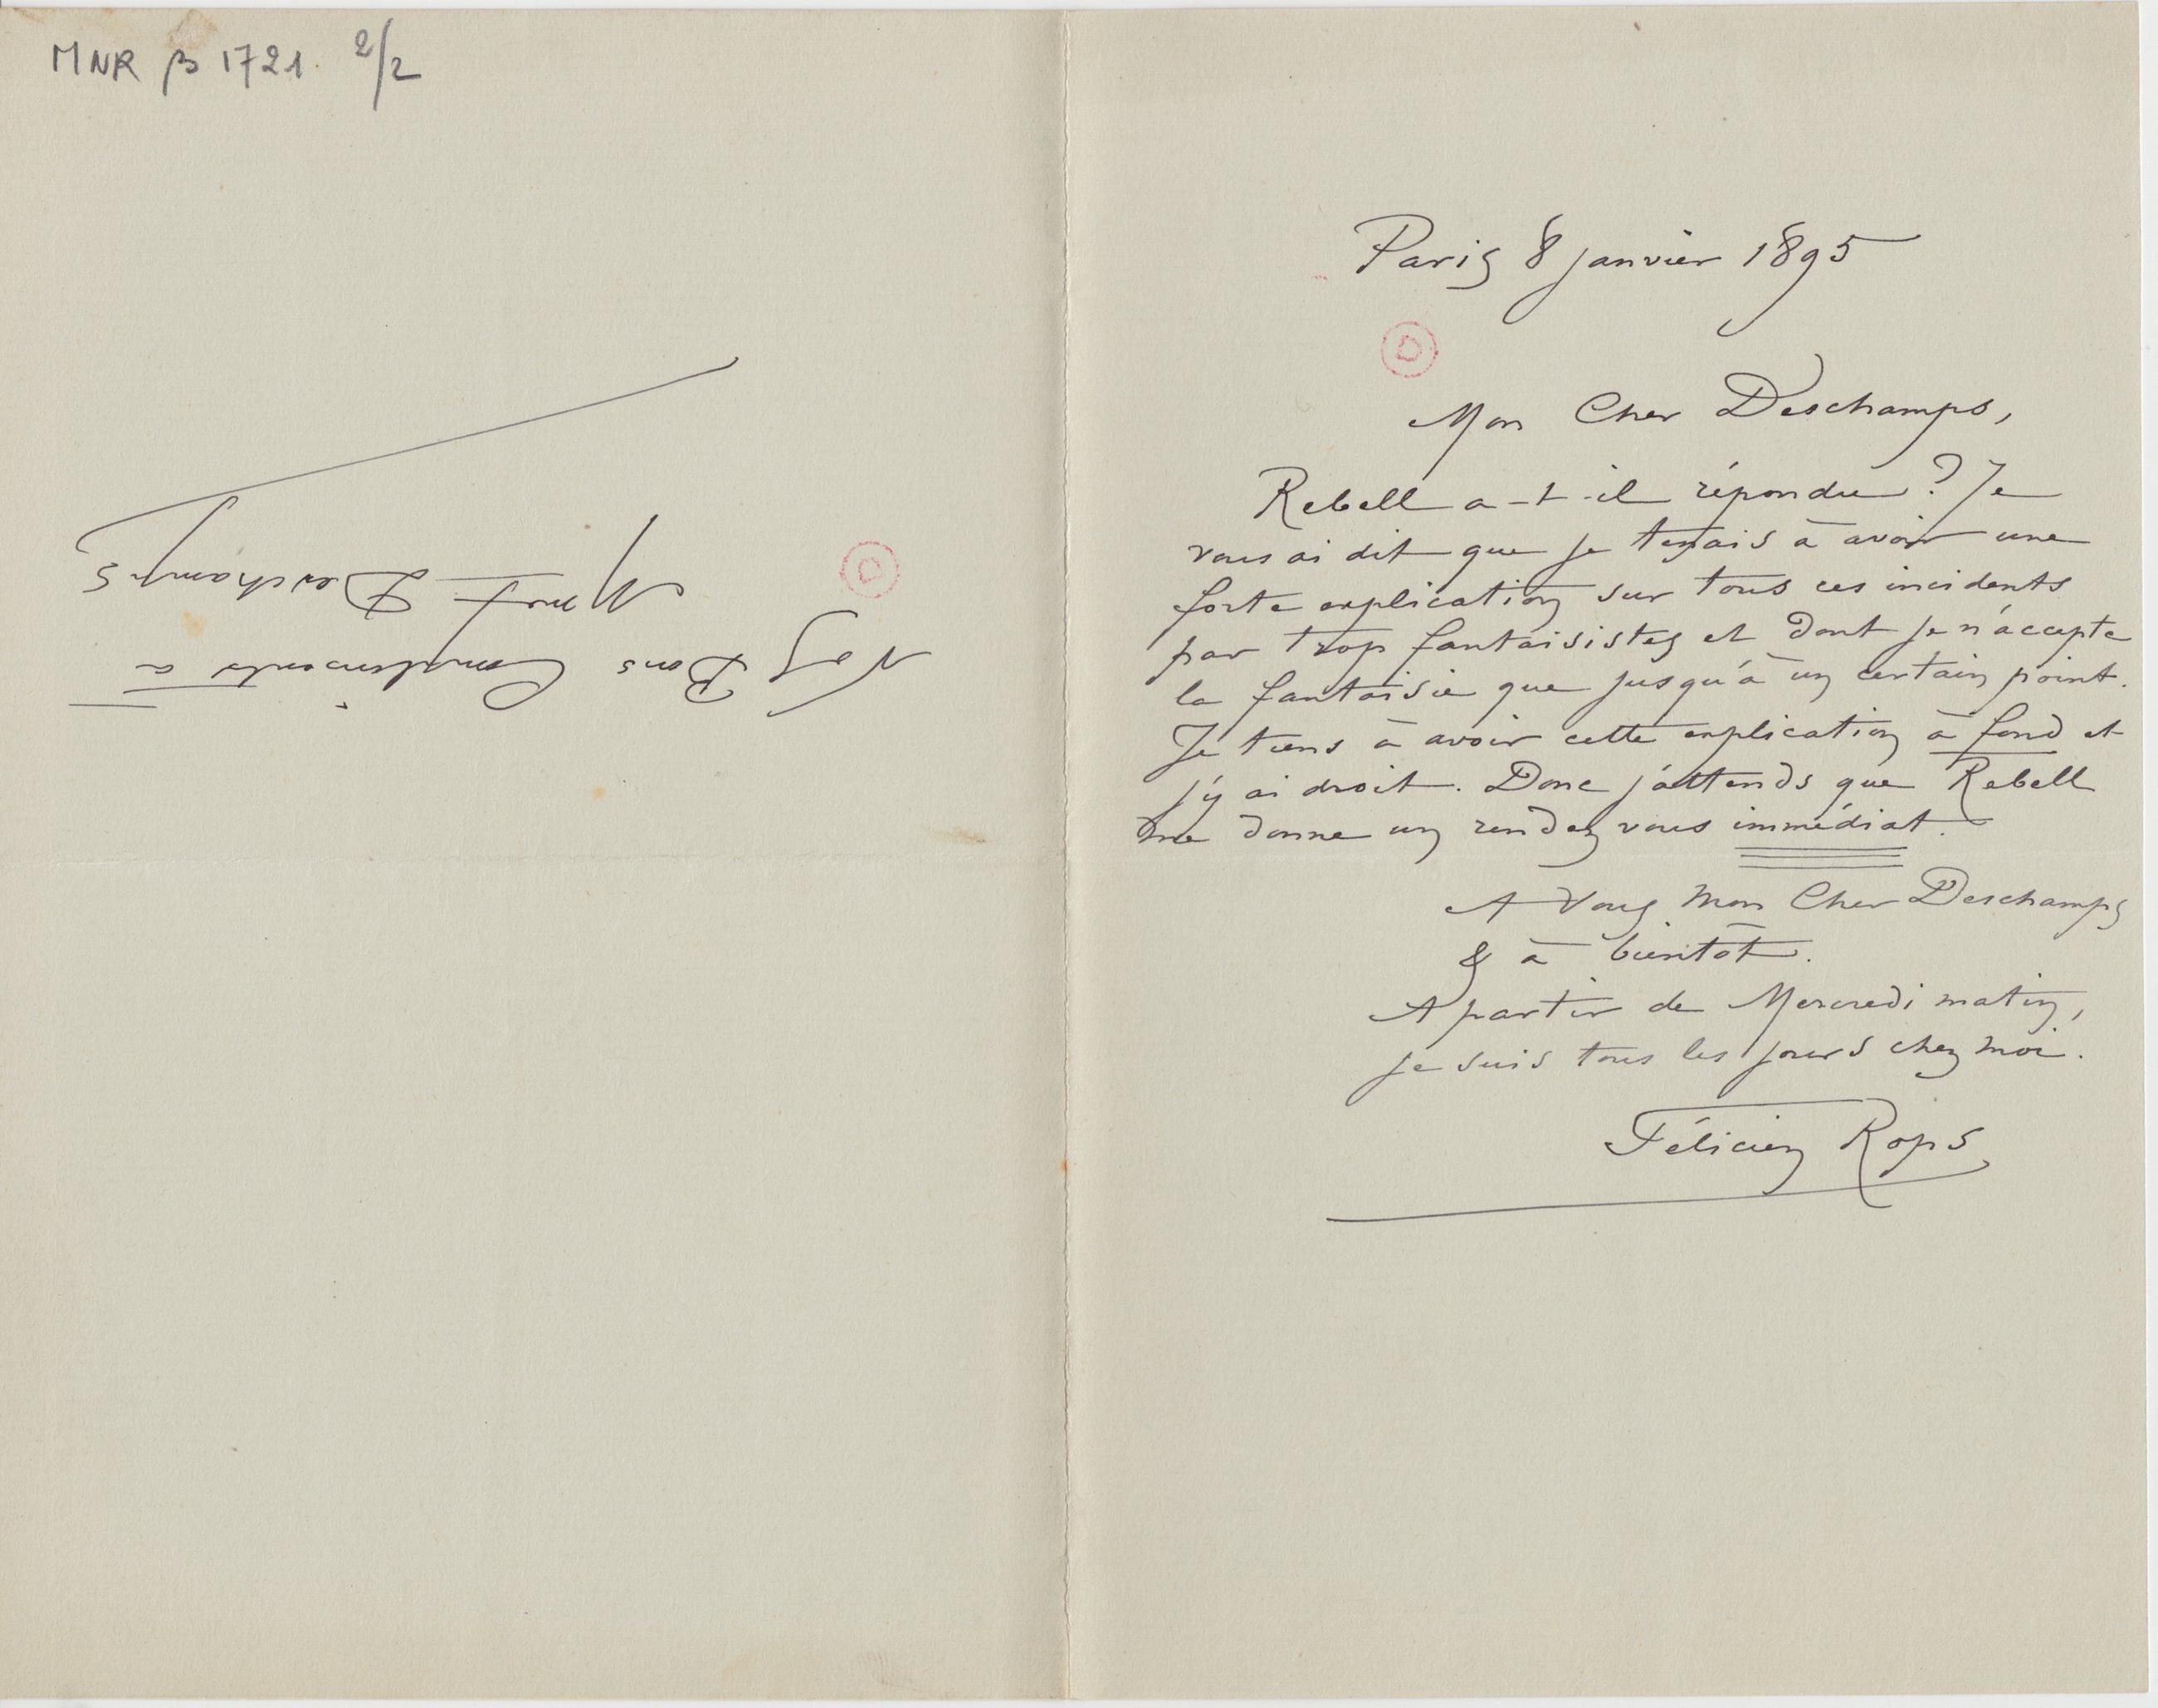 MNR β 1721. 2/2
Paris 8 janvier 1895
Mon Cher Deschamps,
Rebell a-t-il répondu ? Je
vous ai dit que je tenais à avoir une
forte explication sur tous ces incidents
par trop fantaisistes et dont je n'accepte
la fantaisie que jusqu'à un certain point.
Je tiens à avoir cette explication à fond et
j'y ai droit. Donc j'attends que Rebell
me donne un rendez vous immédiat.
A Vous mon Cher Deschamps
& à bientôt.
A partir de Mercredi matin,
je suis tous les jours chez moi.
Félicien Rops
Nos Bons Compliments à
Deschamps